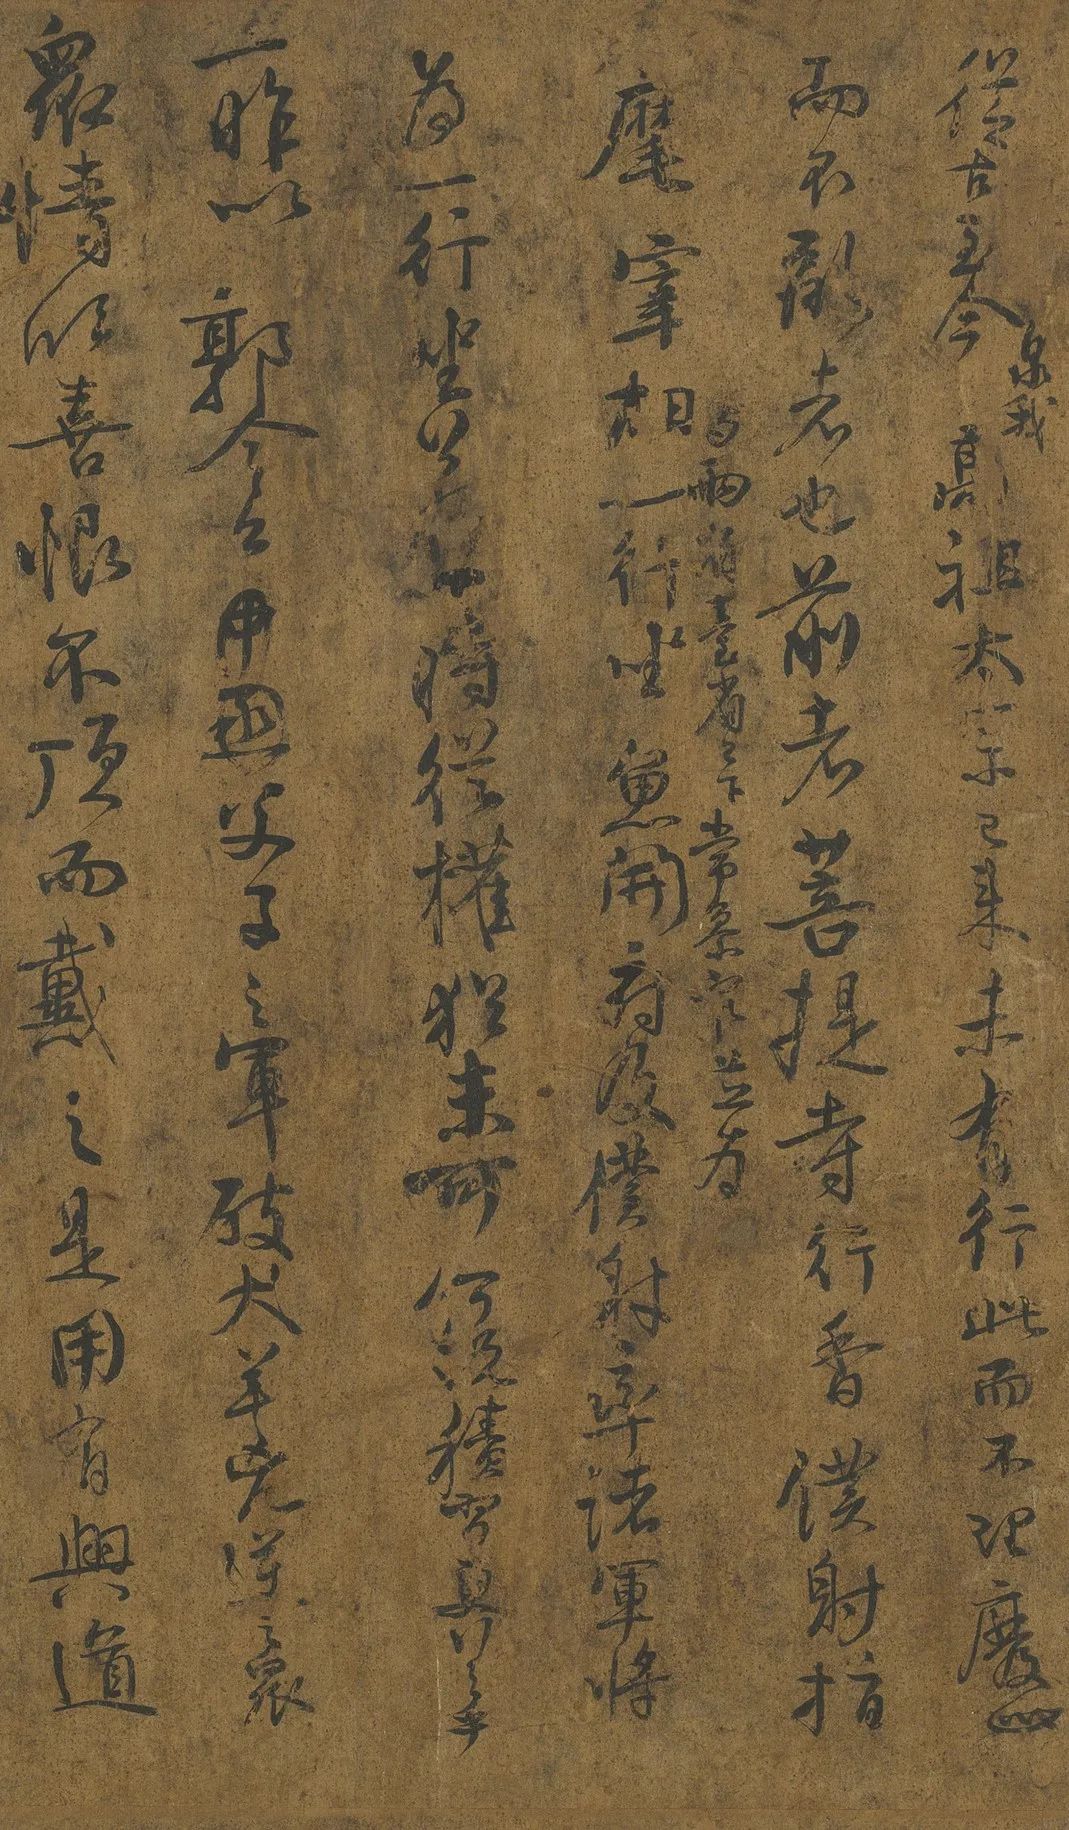 從古至今洎我高祖太宗已來未有行此而不理廢此
而不亂者也前者菩提寺行香僕射指
麾宰相與兩省臺省已下常參官並為一行坐魚開府及僕射率諸軍將
為一行坐若一時從權猶未可何況積習更行之乎
一昨以郭令公父子之軍破犬羊兇逆之眾
眾情欣喜恨不頂而戴之是用有興道